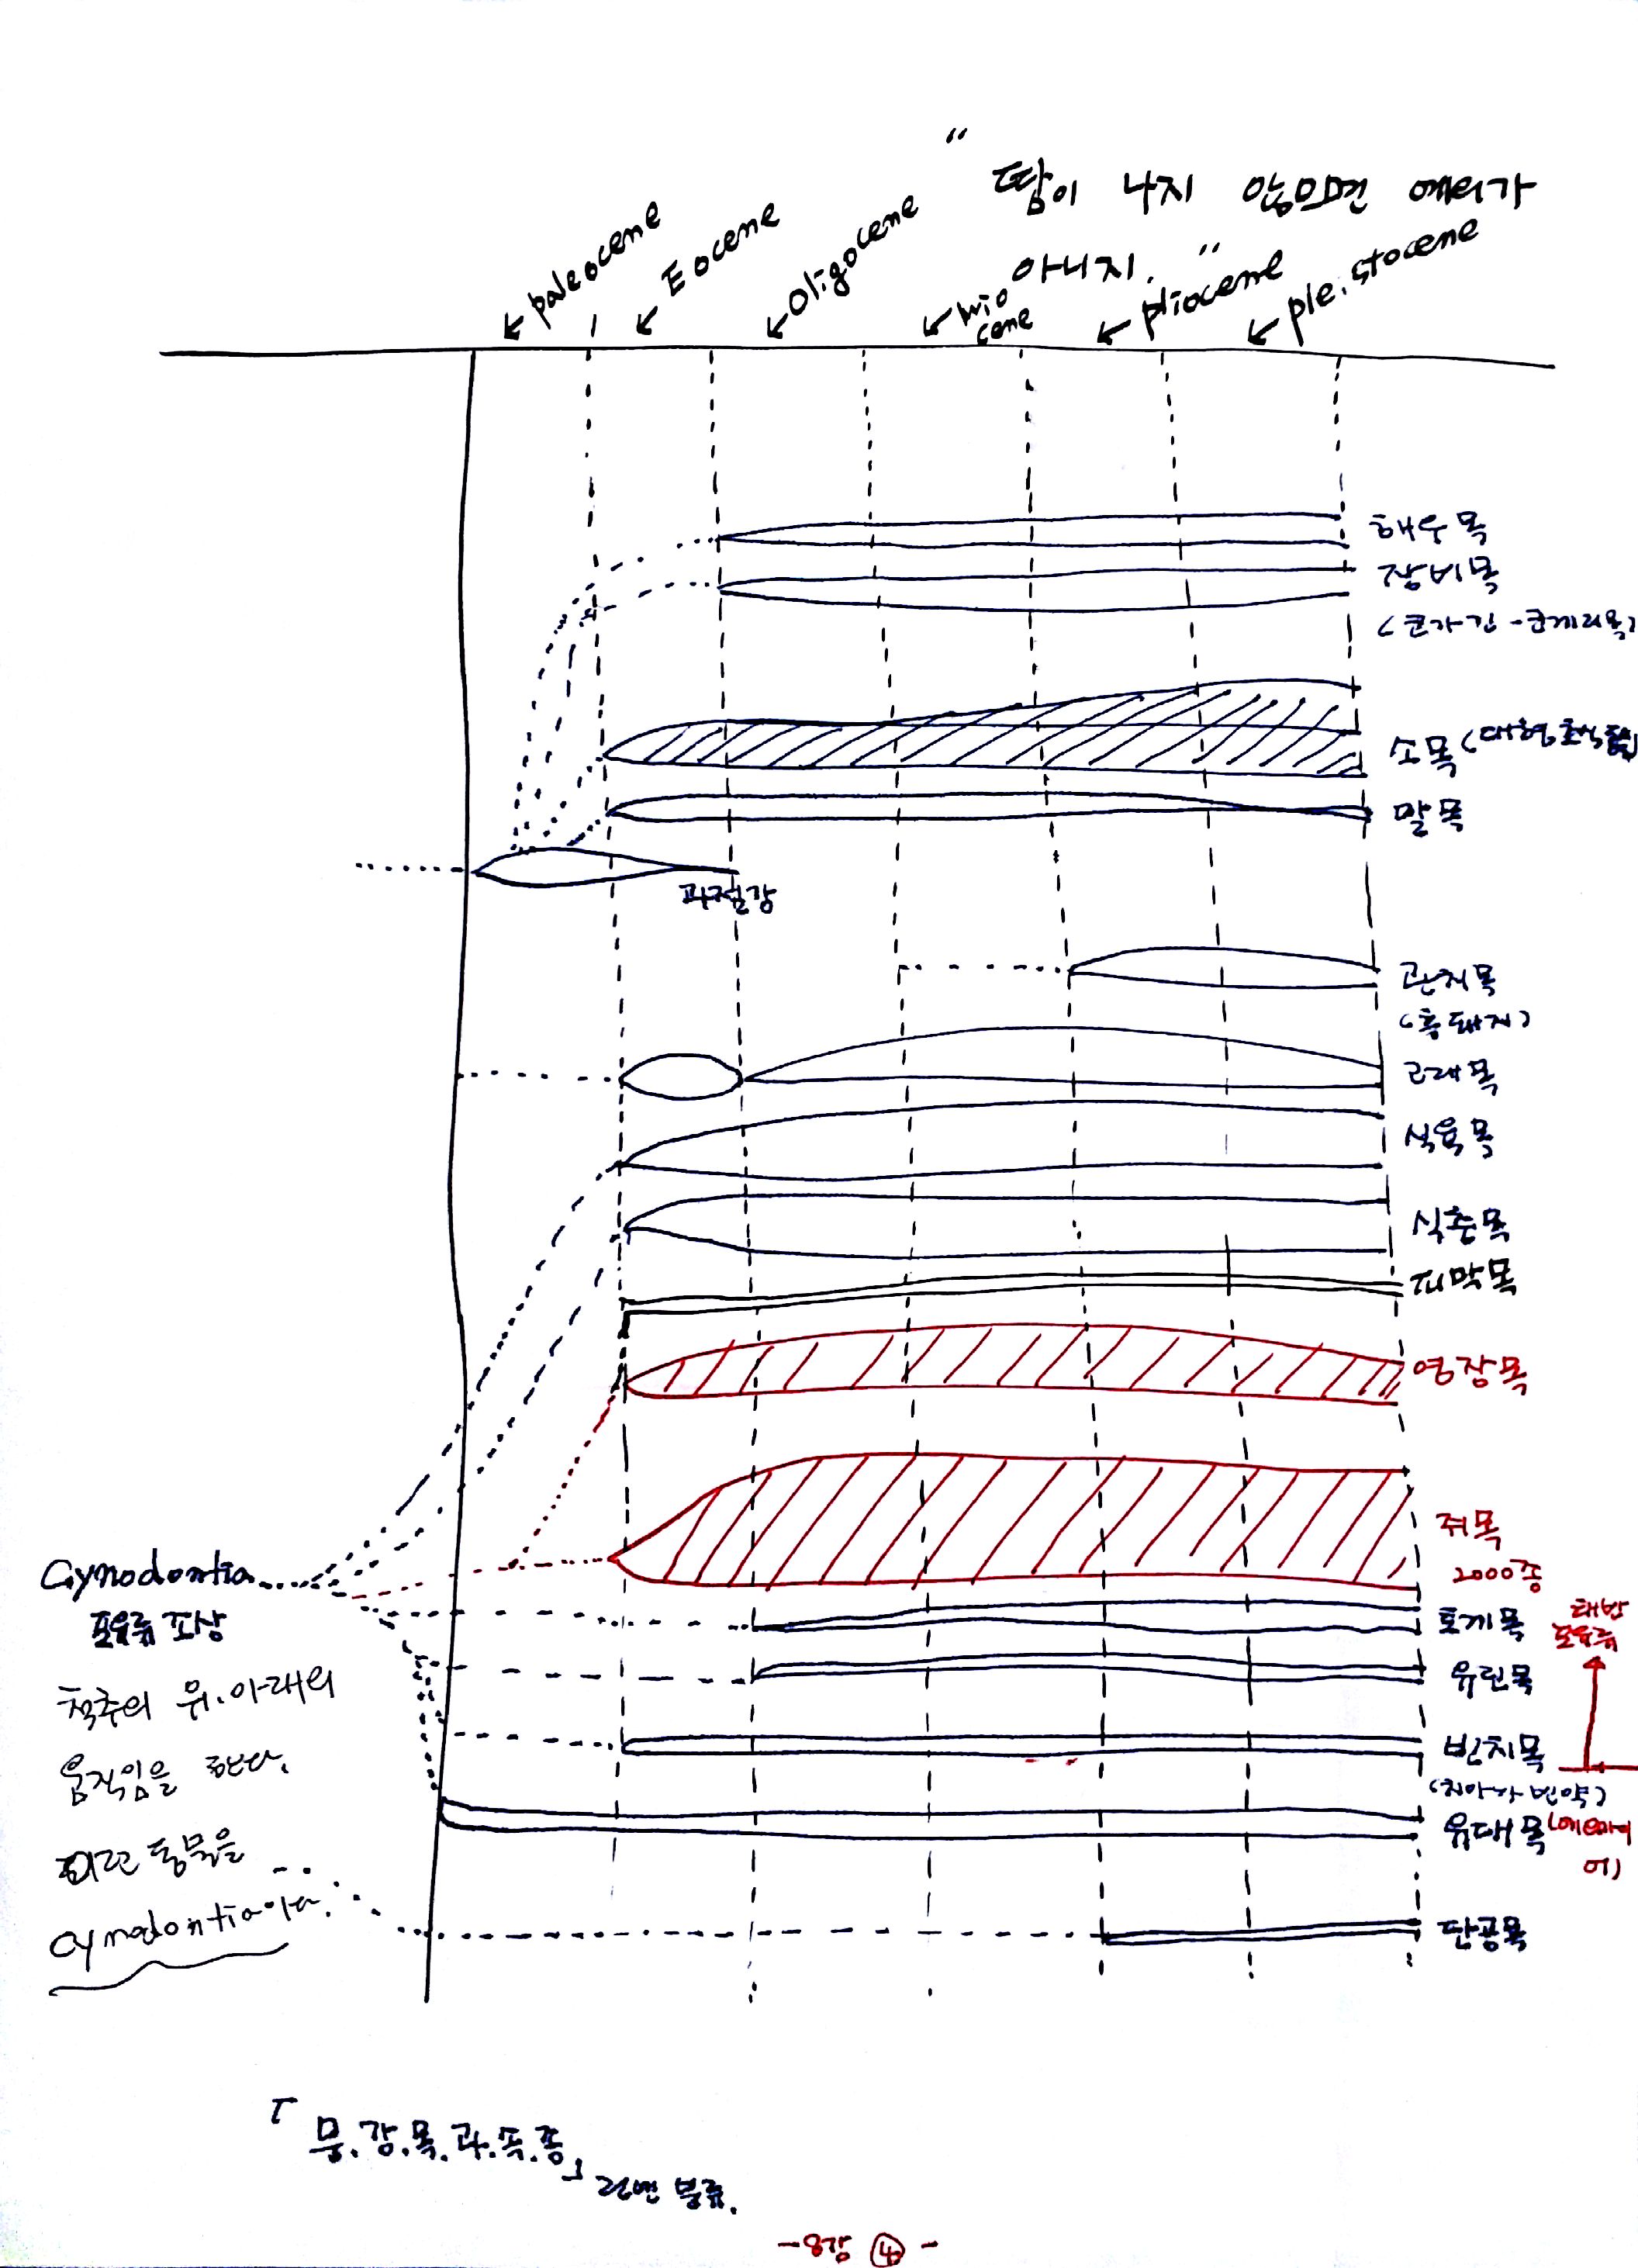 " 땀이 나지 않으면 예의가
아니지. "
paleocene
Eocene
Oligocene
mio
cene
pliocene
pleistocene
해우목
장비목
소목 (대형초식
말목
과절강
관치목
(흙돼지)
고래목
식육목
식충목
피막목
영장목
쥐목
2000종
토끼목
유린목
빈치목
(치아가 빈약)
유대목
단공목
태반
포유류
Cynodontia
포유류 조상
척추의 위.아래의
움직임을 한다.
이런 동물을
cynodontia이다.
「문.강.목.과.속.종」
린네 분류.
-8강 ④-